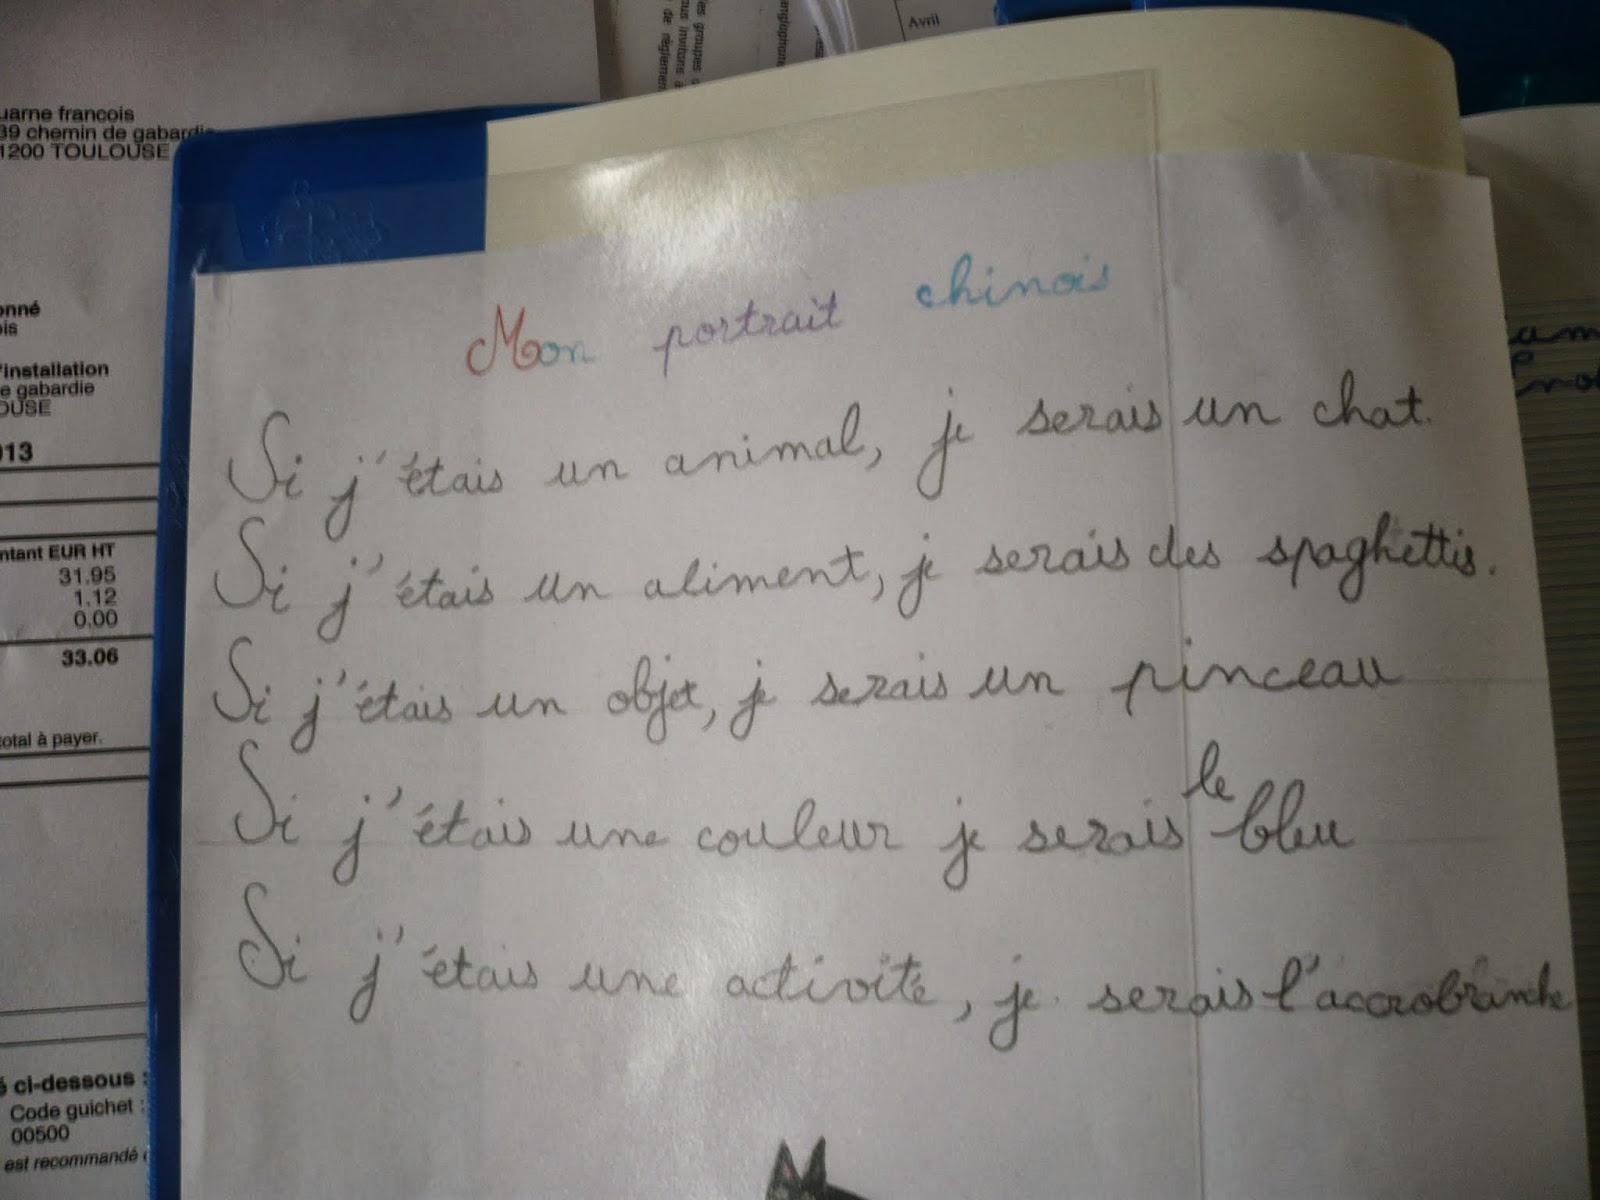 Avril
uarne francois
39 chemin de gabardie
1200 TOULOUSE
onné
ois
'installation
e gabardie
OUSE
13
ntant EUR HT
31.95
1.12
0.00
33.06
total à payer.
ci-dessous :
Code guichet :
00500
est recommandé
es groupes
ous invitons à
de règlement
Mon portrait chinois
Si j'étais un animal, je serais un chat.
Si j'étais un aliment, je serais des spaghettis.
Si j'étais un objet, je serais un pinceau
Si j'étais une couleur je serais le bleu
Si j'étais une activité, je serais l'accrobranche